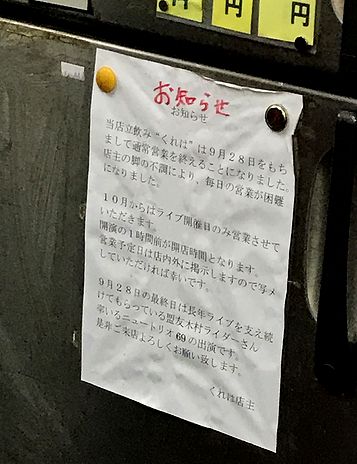 円
円
円
お知らせ
お知らせ
当店立飲み“くれは”は9月28日をもち
まして通常営業を終えることになりました。
店主の脚の不調により、毎日の営業が困難
になりました。
10月からはライブ開催日のみ営業させて
いただきます。
開演の1時間前が開店時間となります。
営業予定日は店内外に掲示しますので写メ
していただければ幸いです。
9月28日の最終日は長年ライブを支え続
けてもらっている盟友木村ライダーさん
率いるニュートリオ69の出演です。
是非ご来店よろしくお願い致します。
くれは店主